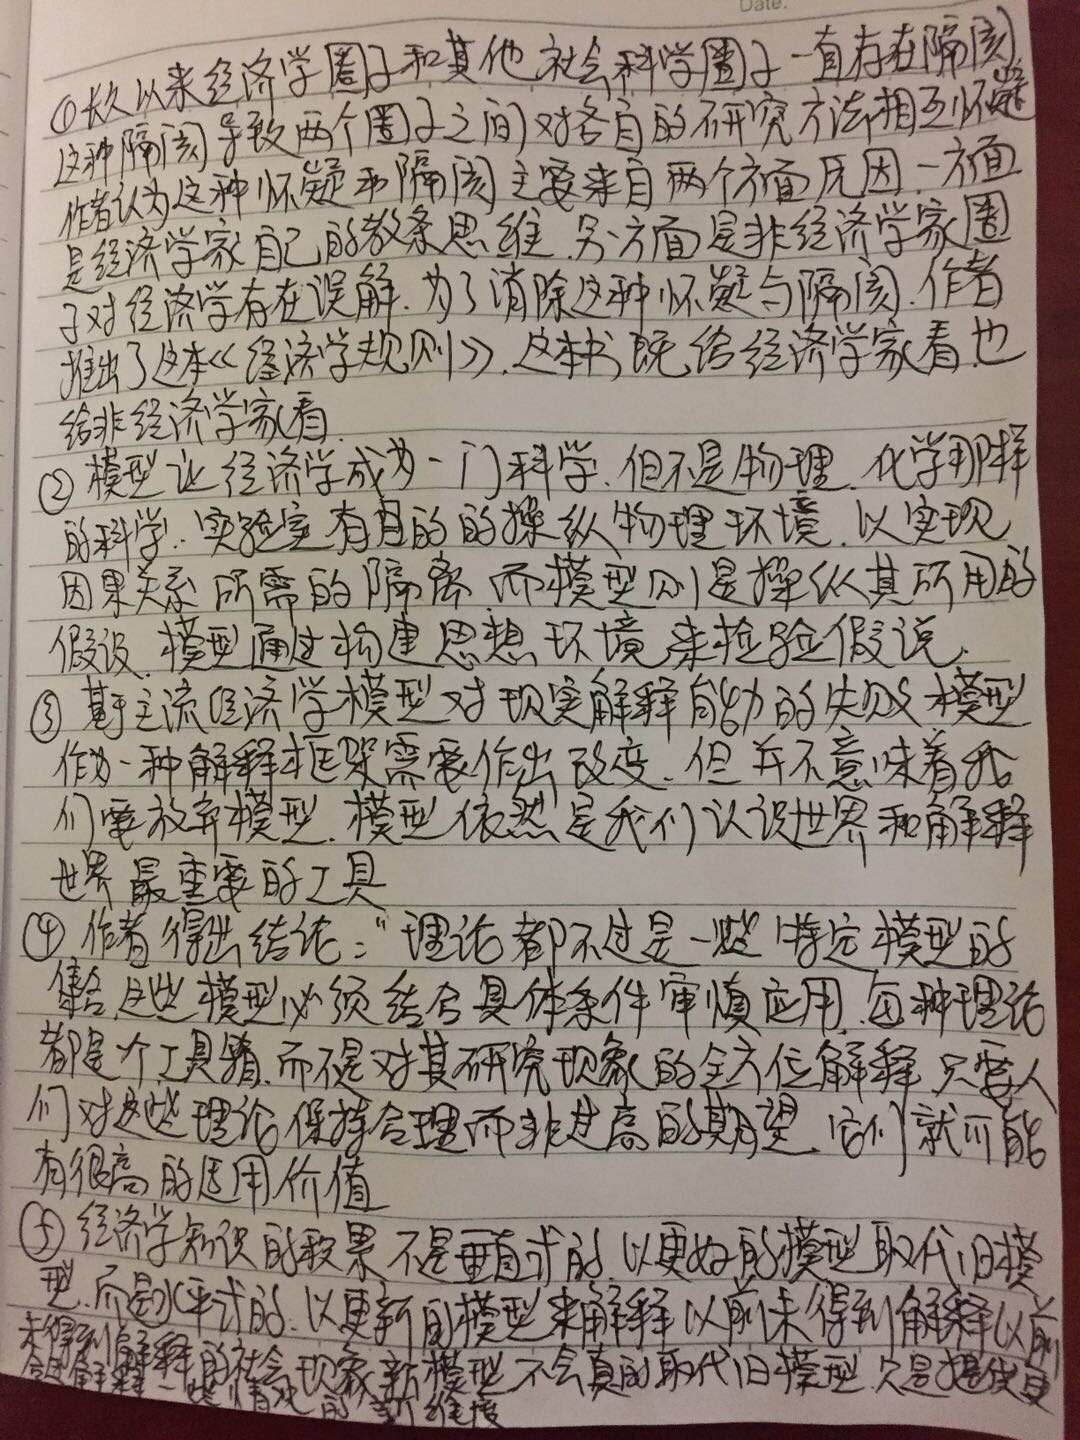 Date.
①长久以来经济学圈子和其他社会科学圈子一直存在隔阂
这种隔阂导致两个圈子之间对各自的研究方法相互怀疑
作者认为这种怀疑和隔阂主要来自两个方面原因.一方面
是经济学家自己的教条思维.另一方面是非经济学家圈
子对经济学存在误解.为了消除这种怀疑与隔阂.作者
推出了这本《经济学规则》.这本书既给经济学家看.也
给非经济学家看.
②模型让经济学成为一门科学.但不是物理、化学那样
的科学.实验室有目的的操纵物理环境.以实现
因果关系所需的隔离.而模型则是操纵其所用的
假设.模型通过构建思想环境来检验假说.
③基于主流经济学模型对现实解释能力的失败.模型
作为一种解释框架需要作出改变.但并不意味着我
们要放弃模型.模型依然是我们认识世界和解释
世界最重要的工具
④作者得出结论:"理论都不过是一些特定模型的
集合.这些模型必须结合具体条件审慎应用.每种理论
都是个工具箱.而不是对其研究现象的全方位解释.只要人
们对这些理论保持合理而非过高的期望.它们就可能
有很高的适用价值
⑤经济学知识的积累不是垂直式的.以更好的模型取代旧模
型.而是水平式的.以更新的模型来解释以前未得到解释以前
未得到解释的社会现象.新模型不会真的取代旧模型.只是提供更
解释一些情况的新维度